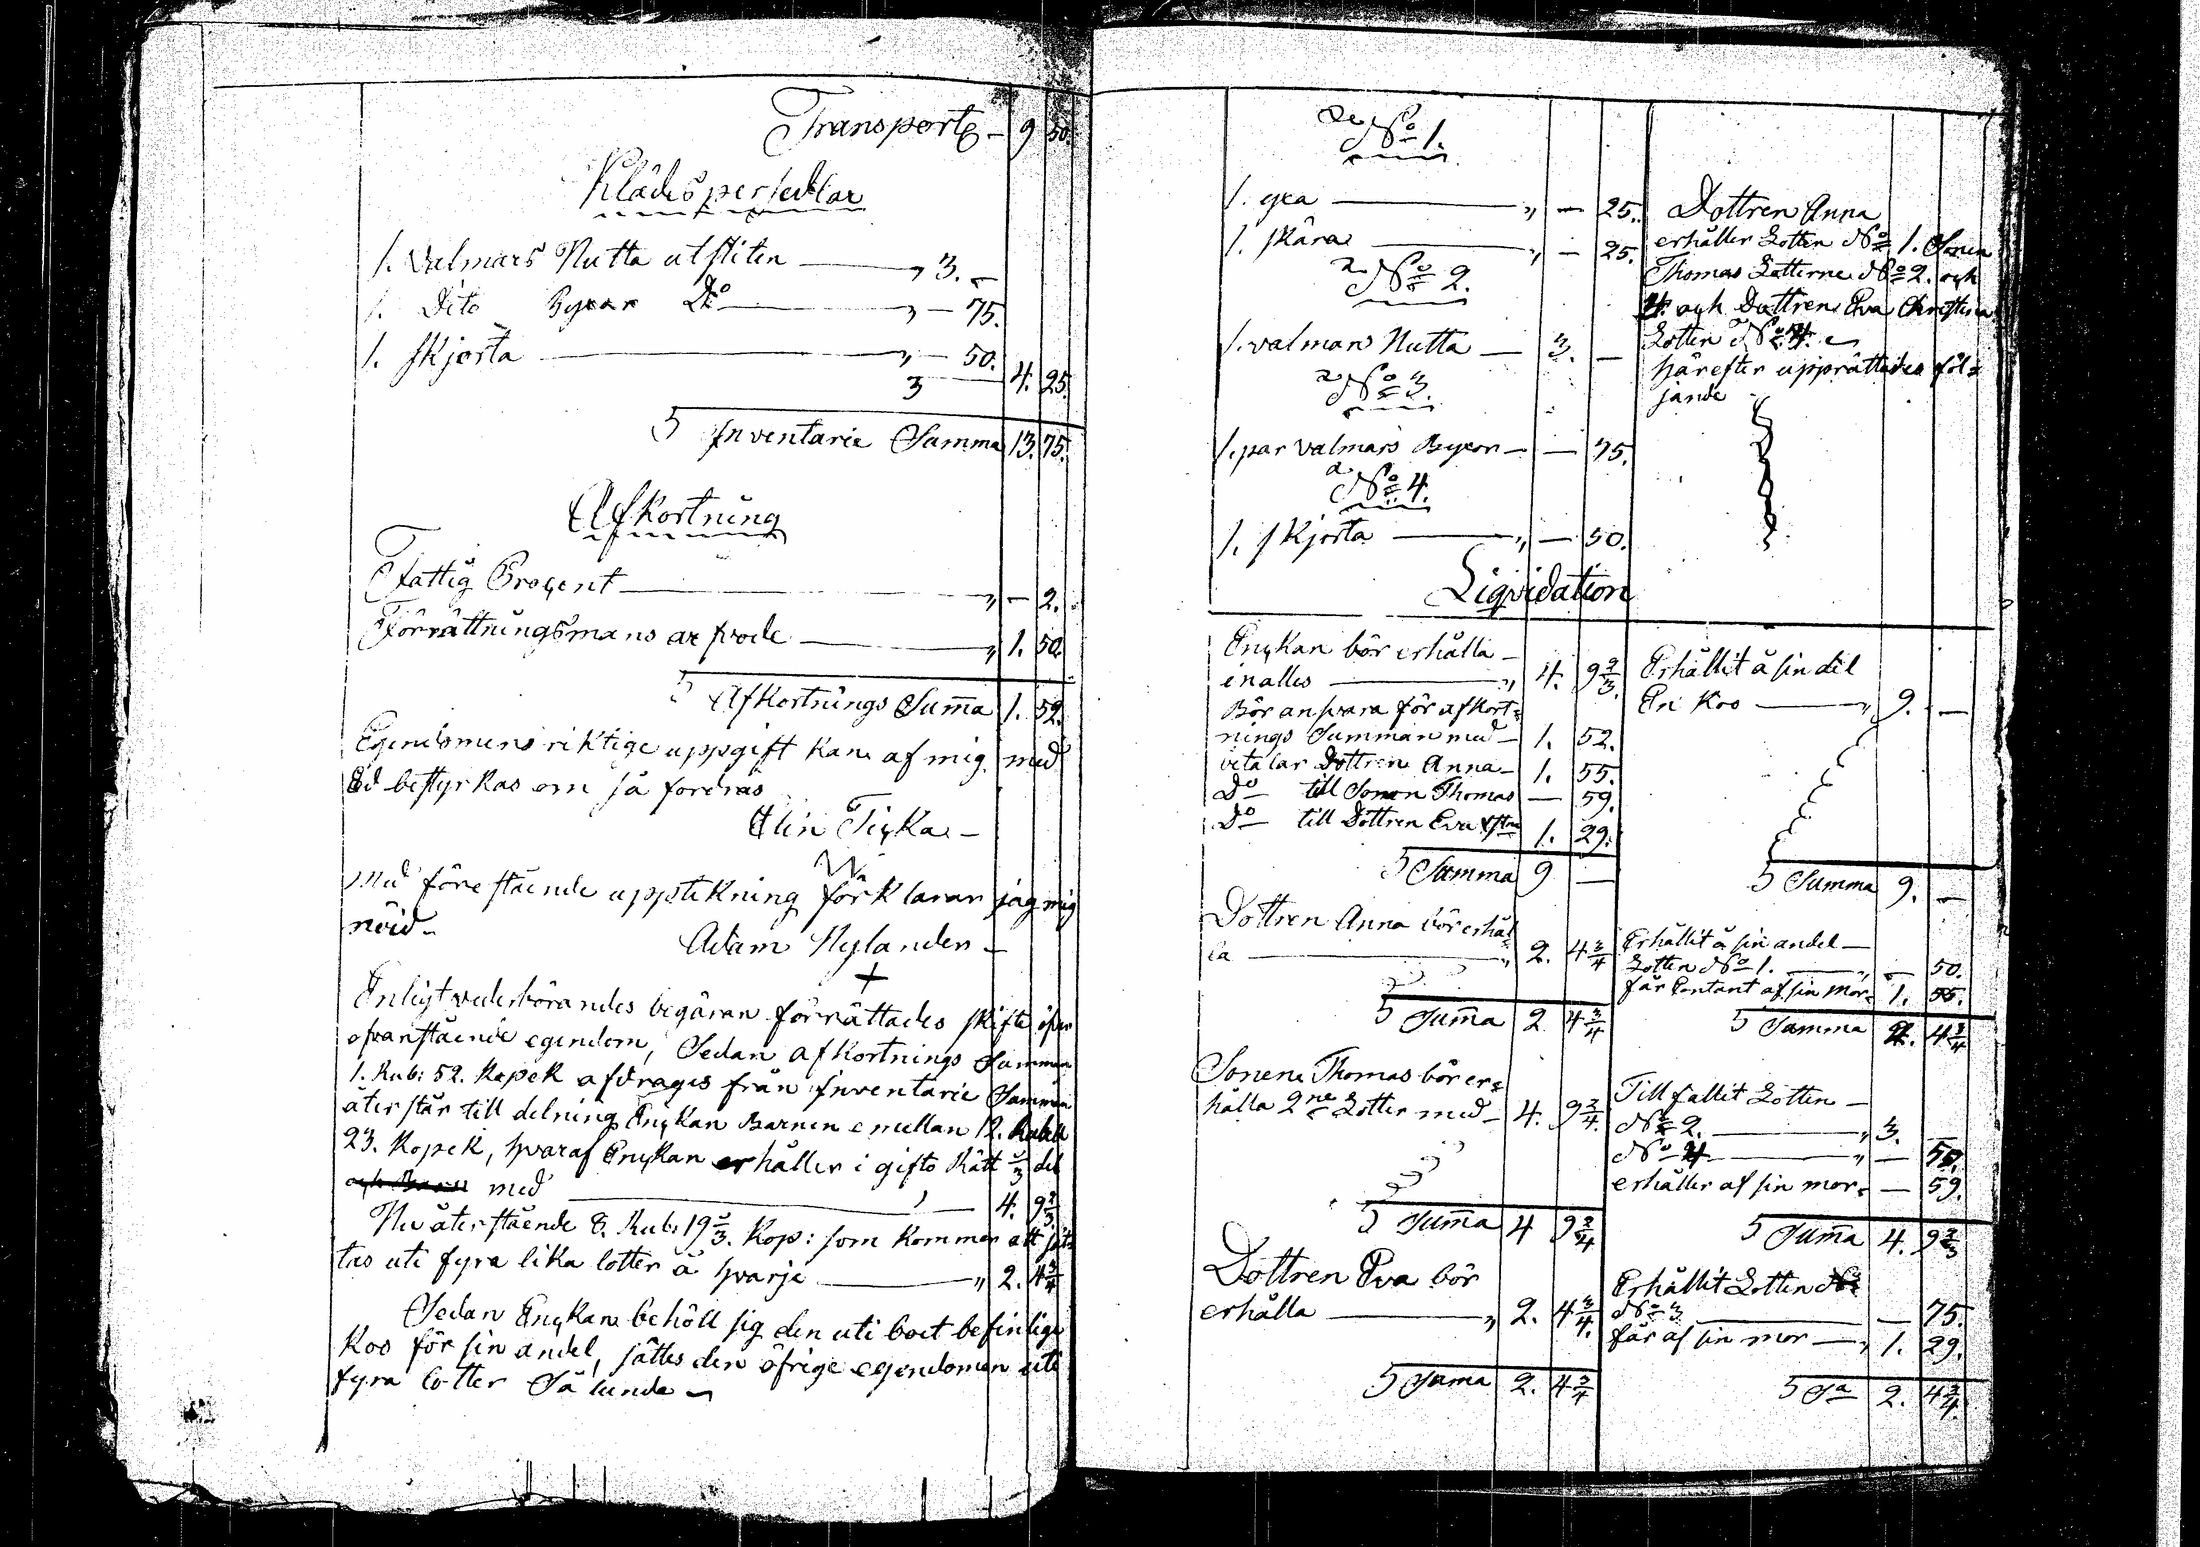 Transport – 9 50.
Klädespersedlar
1. Valmars Nutta utsliten — „ 3. –
1. Dito Byxor Do — „ – 75.
1. skjorta — „ – 50.
4. 25.
Inventarie Summa 13. 75.
Afkortning
Fattig Procent — „ – 2.
Förrättningsmans arfvode — „ 1. 50.
Afkortnings Summa 1. 52.
Egendomens riktige uppgift kan af mig med
Ed bestyrkas om så fordras
Elin Ticka –
Med förestående uppteckning förklarar jag mig
nöid –
Adam Nylander –
+
Enligt vederbörandes begäran förrättades skifte öfver
ofvanstående egendom, Sedan afkortnings Summan
1. Rub: 52. Kopek afdrages från Inventarie Summan
återstår till delning Enckan Barnen emellan 12. Rubel
23. Kopek, hvaraf Enckan erhåller i gifto Rätt 1/3 del
med — 4. 9 2/3.
Nu återstående 8. Rub: 19 1/3. Kop: som kommer att sät-
tas uti fyra lika lotter à hvarje — „ 2. 4 3/4
Sedan Enckan behöll sig den uti boet befintlige
Koo för sin andel, sättes den öfrige egendomen uti
fyra lotter Sålunda
No 1.
1. yxa — „ – 25.
1. skära — „ – 25.
No 2.
1. valmars Nutta — 3. –
No 3.
1. par valmars Byxor – – 75.
No 4.
1. skjorta — „ – 50.
Dottren Anna
erhåller Lotten No 1. Sonen
Thomas Lotterne No 2. och
4. och Dottren Eva Christina
Lotten No
härefter upprättades föl=
jande
Liqvidation
Enckan bör erhålla –
inalles — „ 4. 9 2/3.
Bör ansvara för afkort=
nings Summan med – 1. 52.
betalar Dottren Anna – 1. 55.
Do till Sonen Thomas – 59.
Do till Dottren Eva Xstna 1. 29.
Summa 9 –
Erhållit å sin del
En Koo — „ 9. –
Summa 9. –
Dottren Anna bör erhål=
la — „ 2. 4 3/4
Summa 2 4 3/4
Erhållit å sin andel –
Lotten No 1. — „ – 50.
får Contant af sin mor= 1. 55.
Summa 2. 4 3/4
Sonen Thomas bör er=
hålla 2ne Lotter med – 4. 9 2/4.
Summa 4 9 2/4
Till fallit Lotten –
No 2. — „ 3. –
No 4 — „ – 50.
erhåller af sin mor= – 59.
Summa 4. 9 2/3
Dottren Eva bör
erhålla — „ 2. 4 3/4.
Suma 2. 4 3/4
Erhållit Lotten
No 3 — – 75.
får af sin mor — „ 1. 29.
Sa 2. 4 3/4.